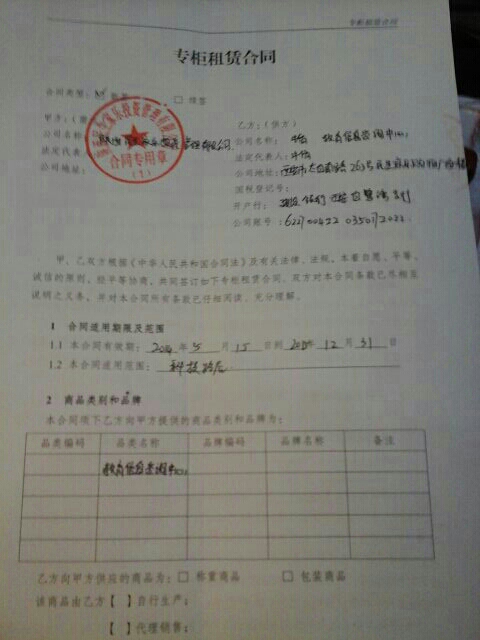 专柜租赁合同
专柜租赁合同
合同类型： 新签 □ 续签
甲方：
公司名称： 管理有限公司
合同专用章
（1）
法定代表
公司地址：
乙方：（供方）
公司名称： 教育信息咨询中心
法定代表人：
公司地址：西安市太白南路263号
国税登记号：
开户行： 银行西安
公司账号：
甲、乙双方根据《中华人民共和国合同法》及有关法律、法规，本着自愿、平等、
诚信的原则，经平等协商，共同签订如下专柜租赁合同，双方对本合同条款已尽相互
说明之义务，并对本合同所有条款已仔细阅读，充分理解。
1 合同适用期限及范围
1.1 本合同有效期：2014年5月15日到2015年12月31日
1.2 本合同适用范围：科技路店
2 商品类别和品牌
本合同项下乙方向甲方提供的商品类别和品牌为：
品类编码 品类名称 品牌编码 品牌名称 备注
教育信息咨询中心
乙方向甲方供应的商品为：□ 称重商品 □ 包装商品
该商品由乙方【 】自行生产；
【 】代理销售；